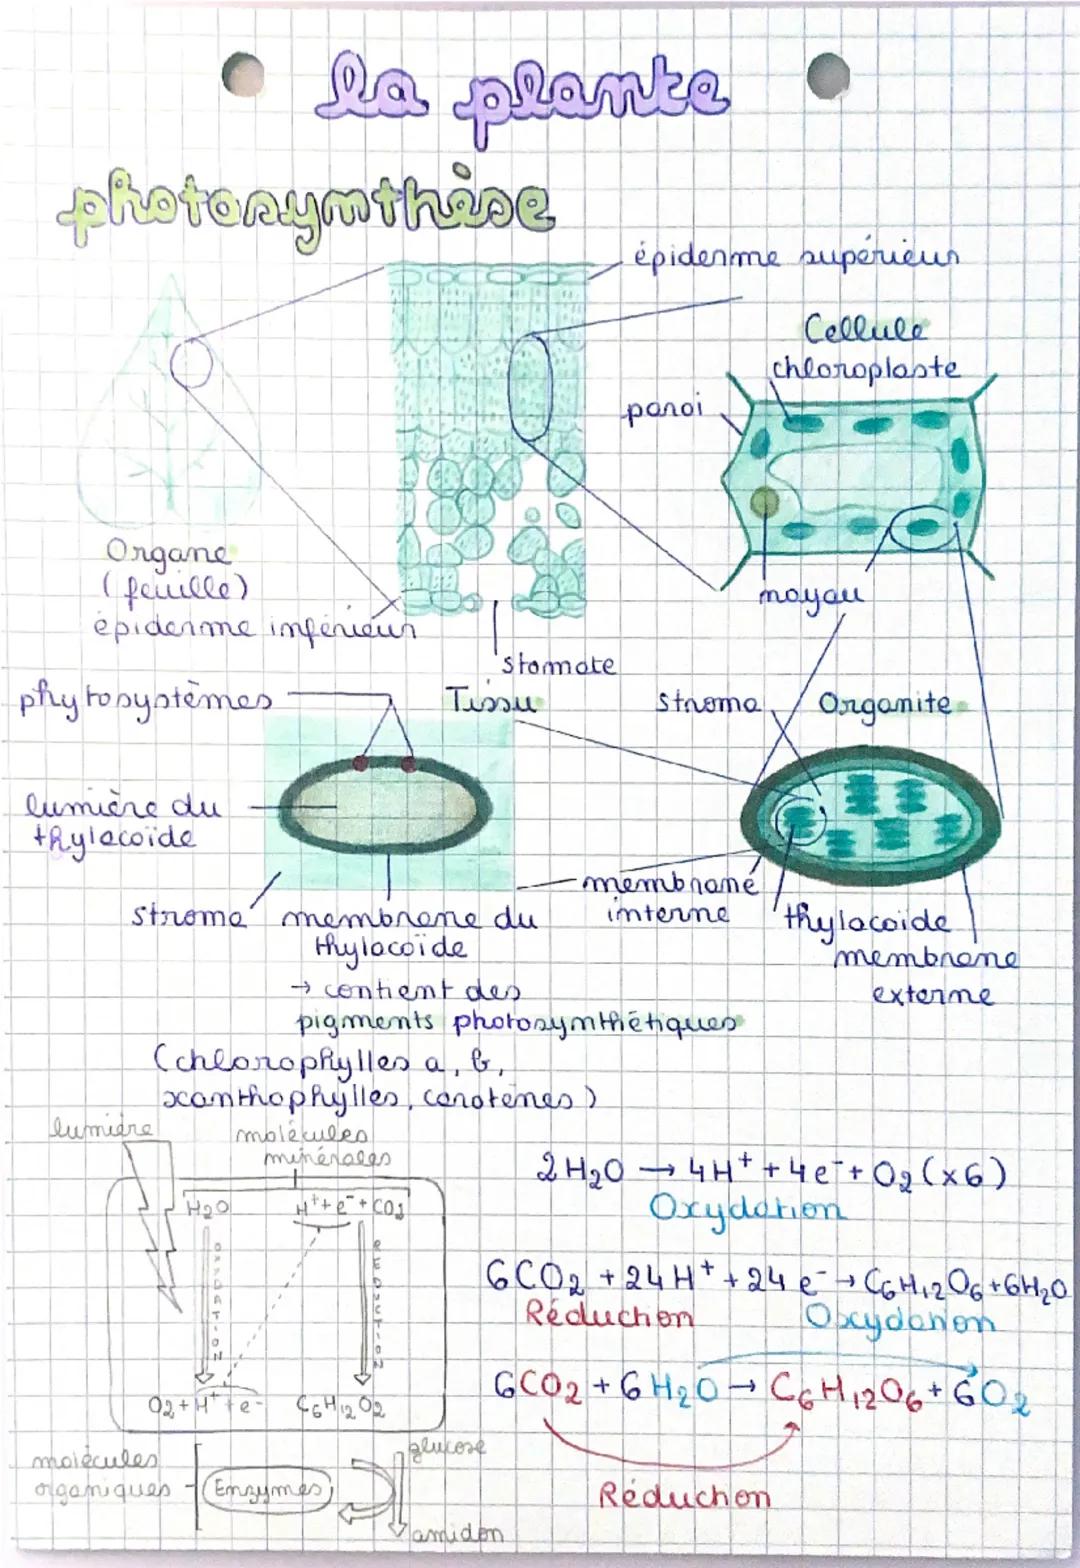 la plante
photosynthèse
épiderme supérieur
Cellule
chloroplaste
paroi
Organe
(feuille)
épiderme inférieur
noyau
stomate
Tissu
phytosystèmes
stroma
Organite
lumière du
thylacoïde
stroma
membrane du
thylacoïde
→ contient des
pigments photosynthétiques
(chlorophylles a, b,
xanthophylles, carotènes)
membrane
interne
thylacoïde
membrane
externe
lumière
molécules
minérales
H₂O
H⁺+e⁻+CO₂
OXYDATION
REDUCTION
O₂+H⁺+e⁻
C₆H₁₂O₂
molécules
organiques
Enzymes
glucose
amidon
2H₂O → 4H⁺ + 4e⁻ + O₂ (x6)
Oxydation
6CO₂ + 24H⁺ + 24e⁻ → C₆H₁₂O₆ + 6H₂O
Réduction
Oxydation
6CO₂ + 6H₂O → C₆H₁₂O₆ + 6O₂
Réduction